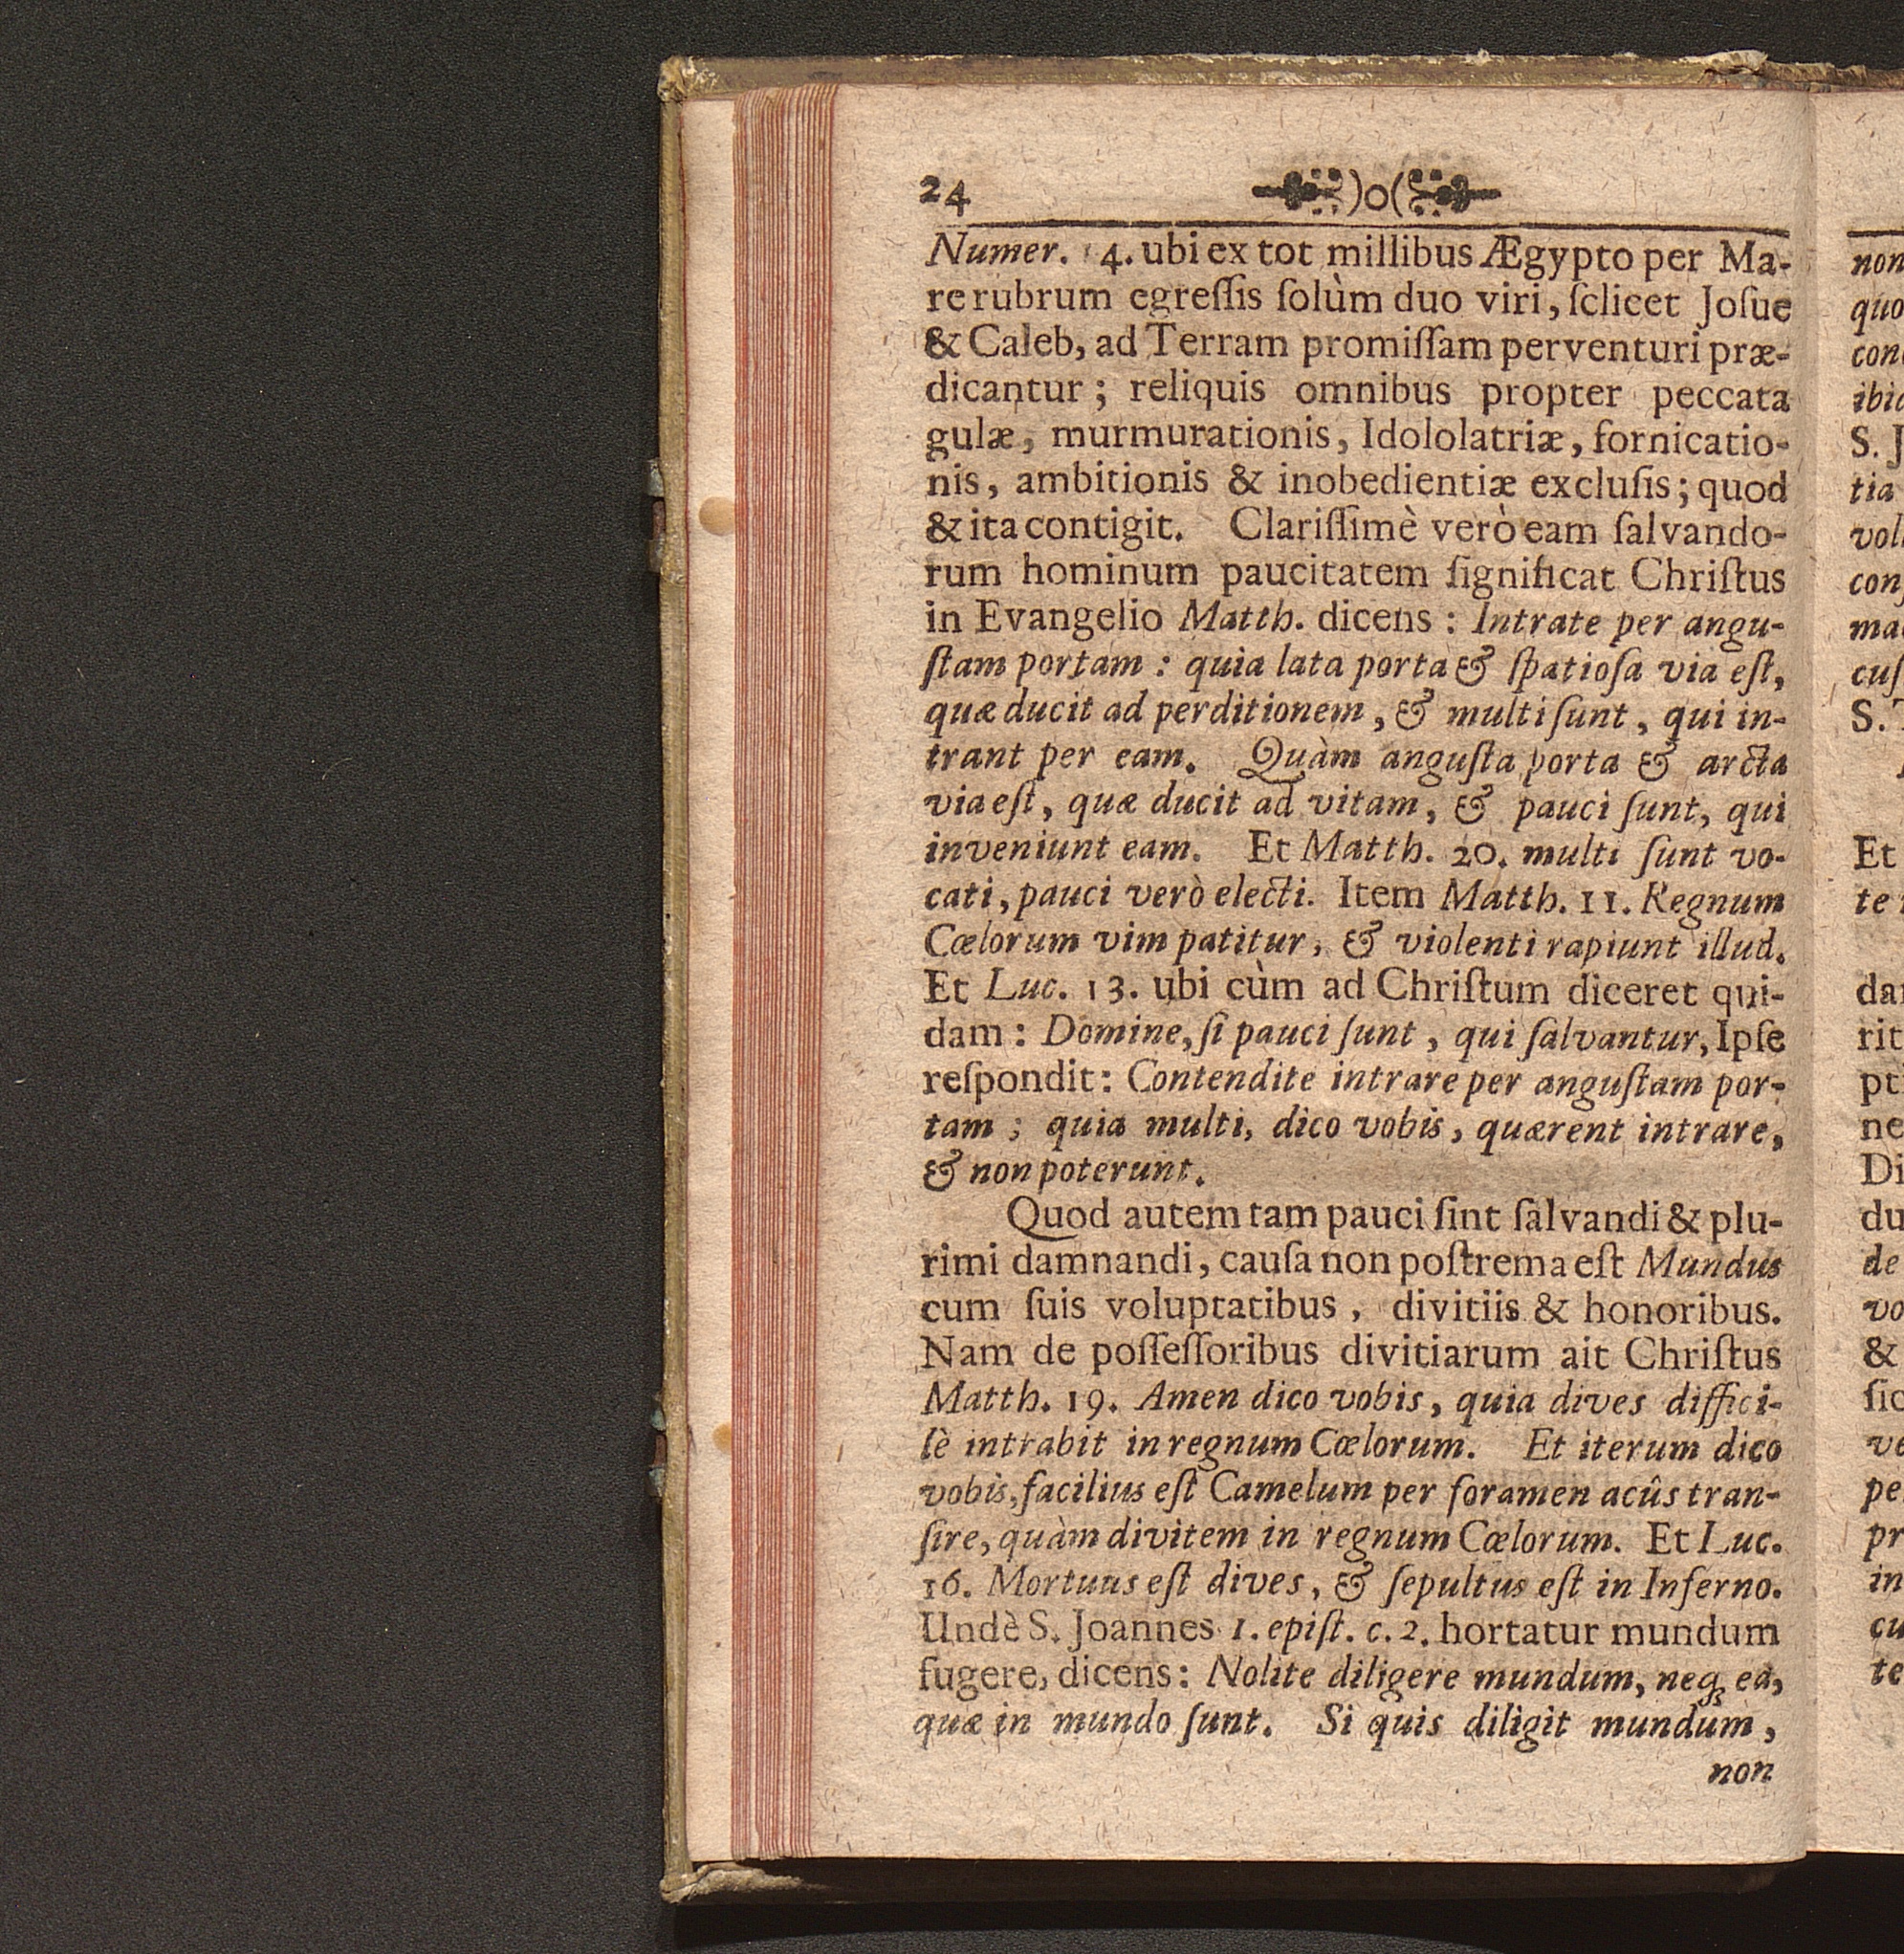 24 )o(
Numer. 14. ubi ex tot millibus Ægypto per Ma-
re rubrum egreſſis ſolùm duo viri, ſclicet Joſue
& Caleb, ad Terram promiſſam perventuri præ-
dicantur; reliquis omnibus propter peccata
gulæ, murmurationis, Idololatriæ, fornicatio-
nis, ambitionis & inobedientiæ excluſis; quod
& ita contigit. Clariſſimè verò eam ſalvando-
rum hominum paucitatem ſignificat Chriſtus
in Evangelio Matth. dicens: Intrate per angu-
ſtam portam: quia lata porta & ſpatioſa via eſt,
quæ ducit ad perditionem, & multi ſunt, qui in-
trant per eam. Quàm anguſta porta & arcta
via eſt, quæ ducit ad vitam, & pauci ſunt, qui
inveniunt eam. Et Matth. 20. multi ſunt vo-
cati, pauci verò electi. Item Matth. 11. Regnum
Cœlorum vim patitur, & violenti rapiunt illud.
Et Luc. 13. ubi cùm ad Chriſtum diceret qui-
dam: Domine, ſi pauci ſunt, qui ſalvantur, Ipſe
reſpondit: Contendite intrare per anguſtam por-
tam; quia multi, dico vobis, quærent intrare,
& non poterunt.
Quod autem tam pauci ſint ſalvandi & plu-
rimi damnandi, cauſa non poſtrema eſt Mundus
cum ſuis voluptatibus, divitiis & honoribus.
Nam de poſſeſſoribus divitiarum ait Chriſtus
Matth. 19. Amen dico vobis, quia dives diffici-
lè intrabit in regnum Cœlorum. Et iterum dico
vobis, facilius eſt Camelum per foramen acûs tran-
ſire, quàm divitem in regnum Cœlorum. Et Luc.
16. Mortuus eſt dives, & ſepultus eſt in Inferno.
Undè S. Joannes 1. epiſt. c. 2. hortatur mundum
fugere, dicens: Nolite diligere mundum, neq; ea,
quæ in mundo ſunt. Si quis diligit mundum,
non